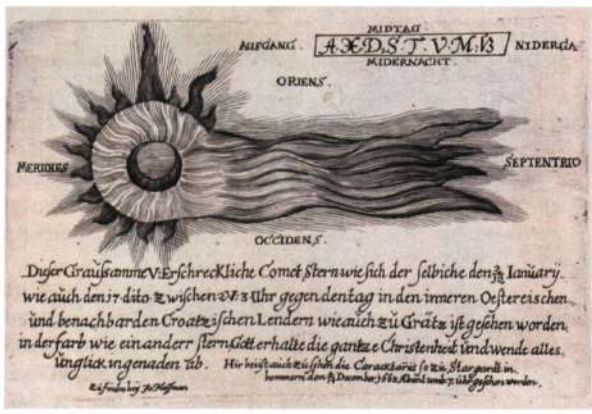 MIDTAG.
AUFGANG. A.Æ.D.S.T.V.M.B NIDERGA
MIDERNACHT.
ORIENS.
MERIDIES
SEPTENTRIO
OCCIDENS.
Dieser Graussamme V. Erschreckliche Comet Stern wie sich der selbiche den Ianuary.
wie auch den 17 dito zwischen 2 V. 3 Uhr gegen den tag in den inneren Oestereischen
und benachbarden Croatzischen Lendern wie auch zu Grätz ist gesehen worden,
in der farb wie ein anderr stern Gott erhalte die gantze Christenheit und wende alles
Unglick in genaden ab. Hir bei ist auch zu sehen die Caracktarus so zu Stargardt in
den Decembr. 1662 Abent umb 7 uhr gesehen worden.
Zu finden bey Jo Hoffman